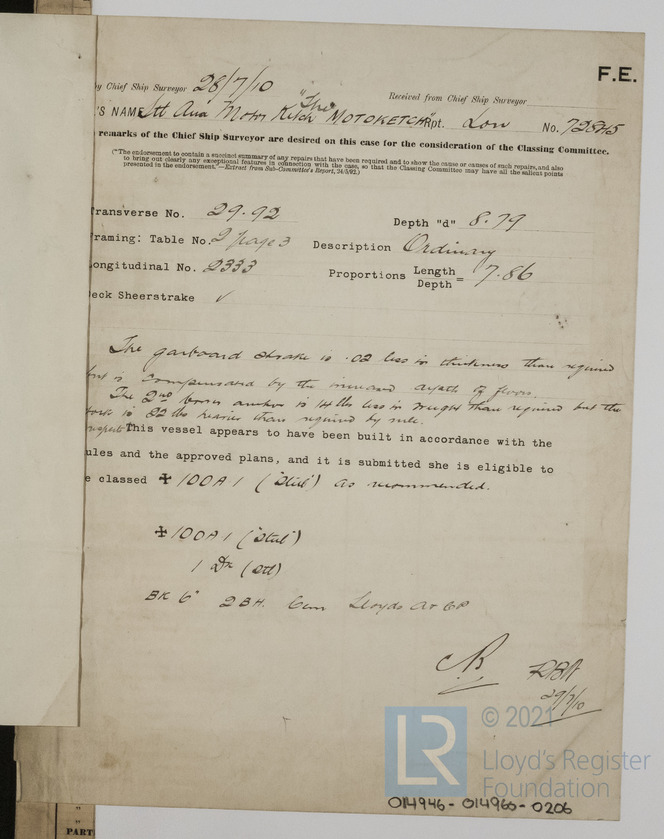 F.E.
by Chief Ship Surveyor 28/7/10 Received from Chief Ship Surveyor
'S NAME Stl Aux Motor Ketch "The MOTOKETCH" Rpt. Lon No. 72845
remarks of the Chief Ship Surveyor are desired on this case for the consideration of the Classing Committee.
("The endorsement to contain a succinct summary of any repairs that have been required and to show the cause or causes of such repairs, and also
to bring out clearly any exceptional features in connection with the case, so that the Classing Committee may have all the salient points
presented in the endorsement."—Extract from Sub-Committee's Report, 24/5/92.)
Transverse No. 29.92 Depth "d" 8.79
Framing: Table No. 2 page 3 Description Ordinary
Longitudinal No. 2333 Proportions Length / Depth = 7.86
Deck Sheerstrake ✓
The garboard strake is .02 less in thickness than required
but is compensated by the increased depth of floors.
The 2nd bower anchor is 14 lbs less in weight than required but the
is 22 lbs heavier than required by rule.
This vessel appears to have been built in accordance with the
ules and the approved plans, and it is submitted she is eligible to
e classed ✠ 100A1 ("Steel") as recommended.
✠ 100A1 ("Steel")
1 Dk (Stl)
BK 6" 2BH. Cem Lloyds A&CP
29/7/10
LR © 2021
Lloyd's Register
Foundation
014946-014960-0206
PART